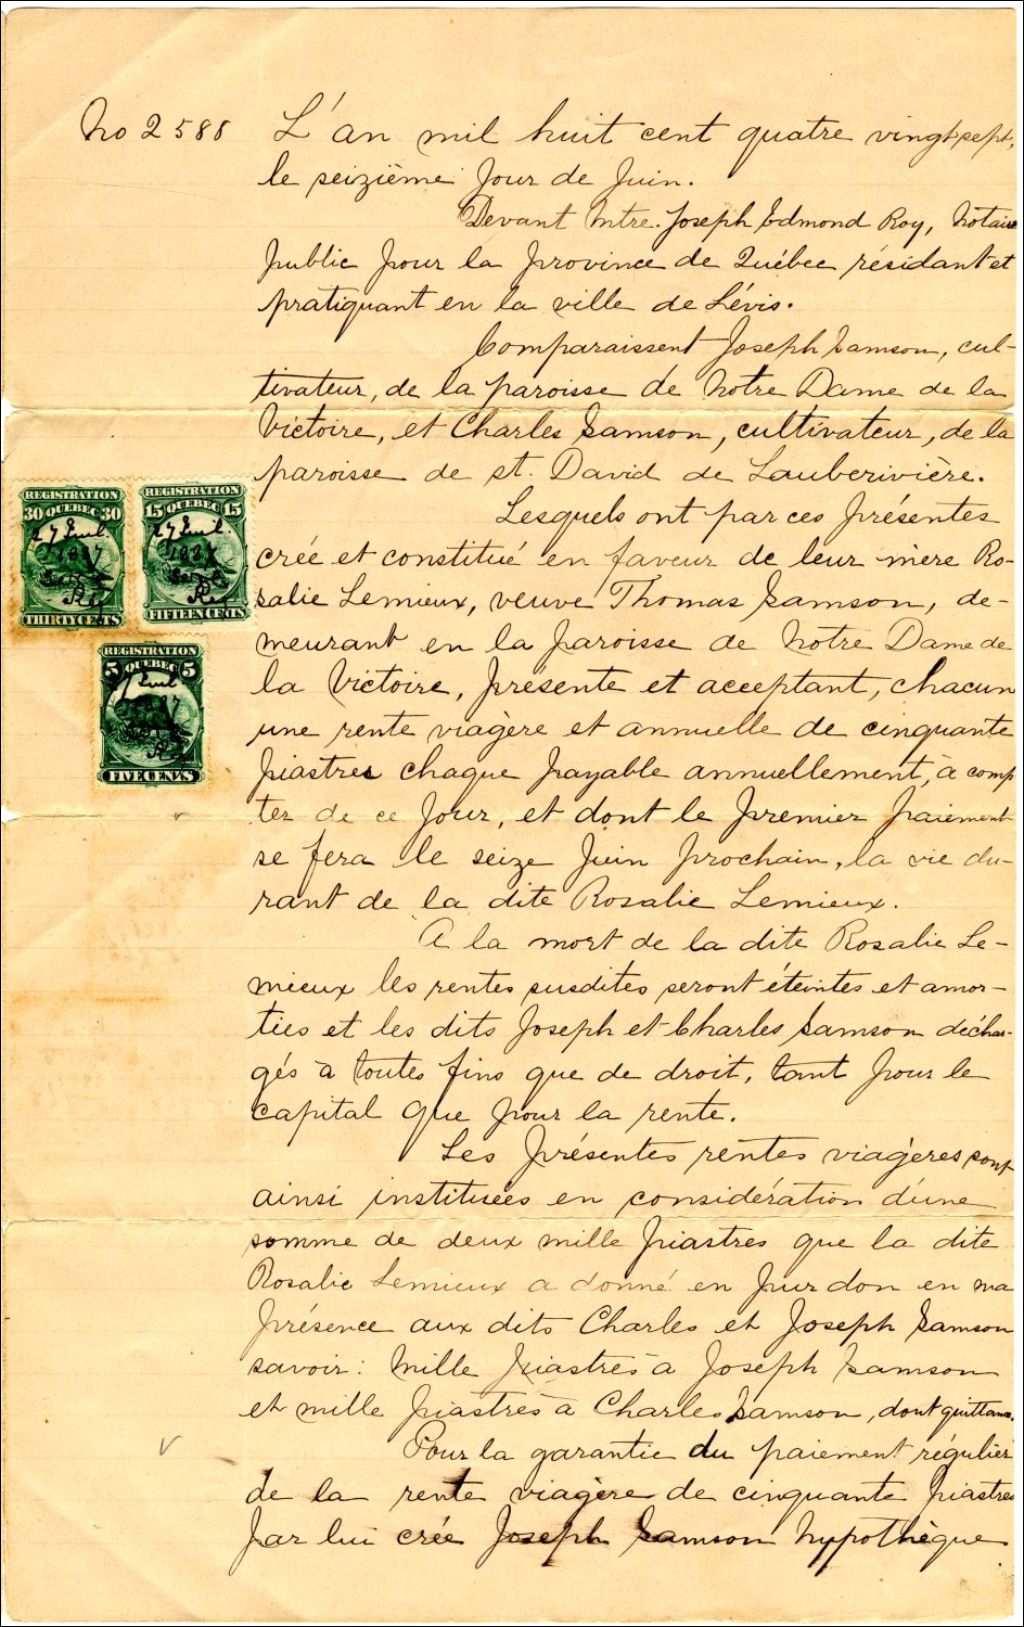 No 2588
L'an mil huit cent quatre vingt sept,
le seizième jour de juin.
Devant Mtre. Joseph Edmond Roy, Notaire
public pour la province de Québec résidant et
pratiquant en la ville de Lévis.
Comparaissent Joseph Samson, cul-
tivateur, de la paroisse de Notre Dame de la
Victoire, et Charles Samson, cultivateur, de la
paroisse de St. David de Lauberivière.
Lesquels ont par ces présentes
créé et constitué en faveur de leur mère Ro-
salie Lemieux, veuve Thomas Samson, de-
meurant en la paroisse de Notre Dame de
la Victoire, présente et acceptant, chacun
une rente viagère et annuelle de cinquante
piastres chaque payable annuellement, à comp
ter de ce jour, et dont le premier paiement
se fera le seize juin prochain, la vie du-
rant de la dite Rosalie Lemieux.
A la mort de la dite Rosalie Le-
mieux les rentes susdites seront éteintes et amor-
ties et les dits Joseph et Charles Samson déchar-
gés à toutes fins que de droit, tant pour le
capital que pour la rente.
Les présentes rentes viagères sont
ainsi instituées en considération d'une
somme de deux mille piastres que la dite
Rosalie Lemieux a donné en pur don en ma
présence aux dits Charles et Joseph Samson
savoir: mille piastres à Joseph Samson
et mille piastres à Charles Samson, dont quittance.
Pour la garantie du paiement régulier
de la rente viagère de cinquante piastres
par lui créé Joseph Samson hypothèque
REGISTRATION
30 QUEBEC 30
27 Juil.
1887
Reg
THIRTY CENTS
REGISTRATION
15 QUEBEC 15
27 Juil
1887
Reg
FIFTEEN CENTS
REGISTRATION
5 QUEBEC 5
Juil
Reg
FIVE CENTS